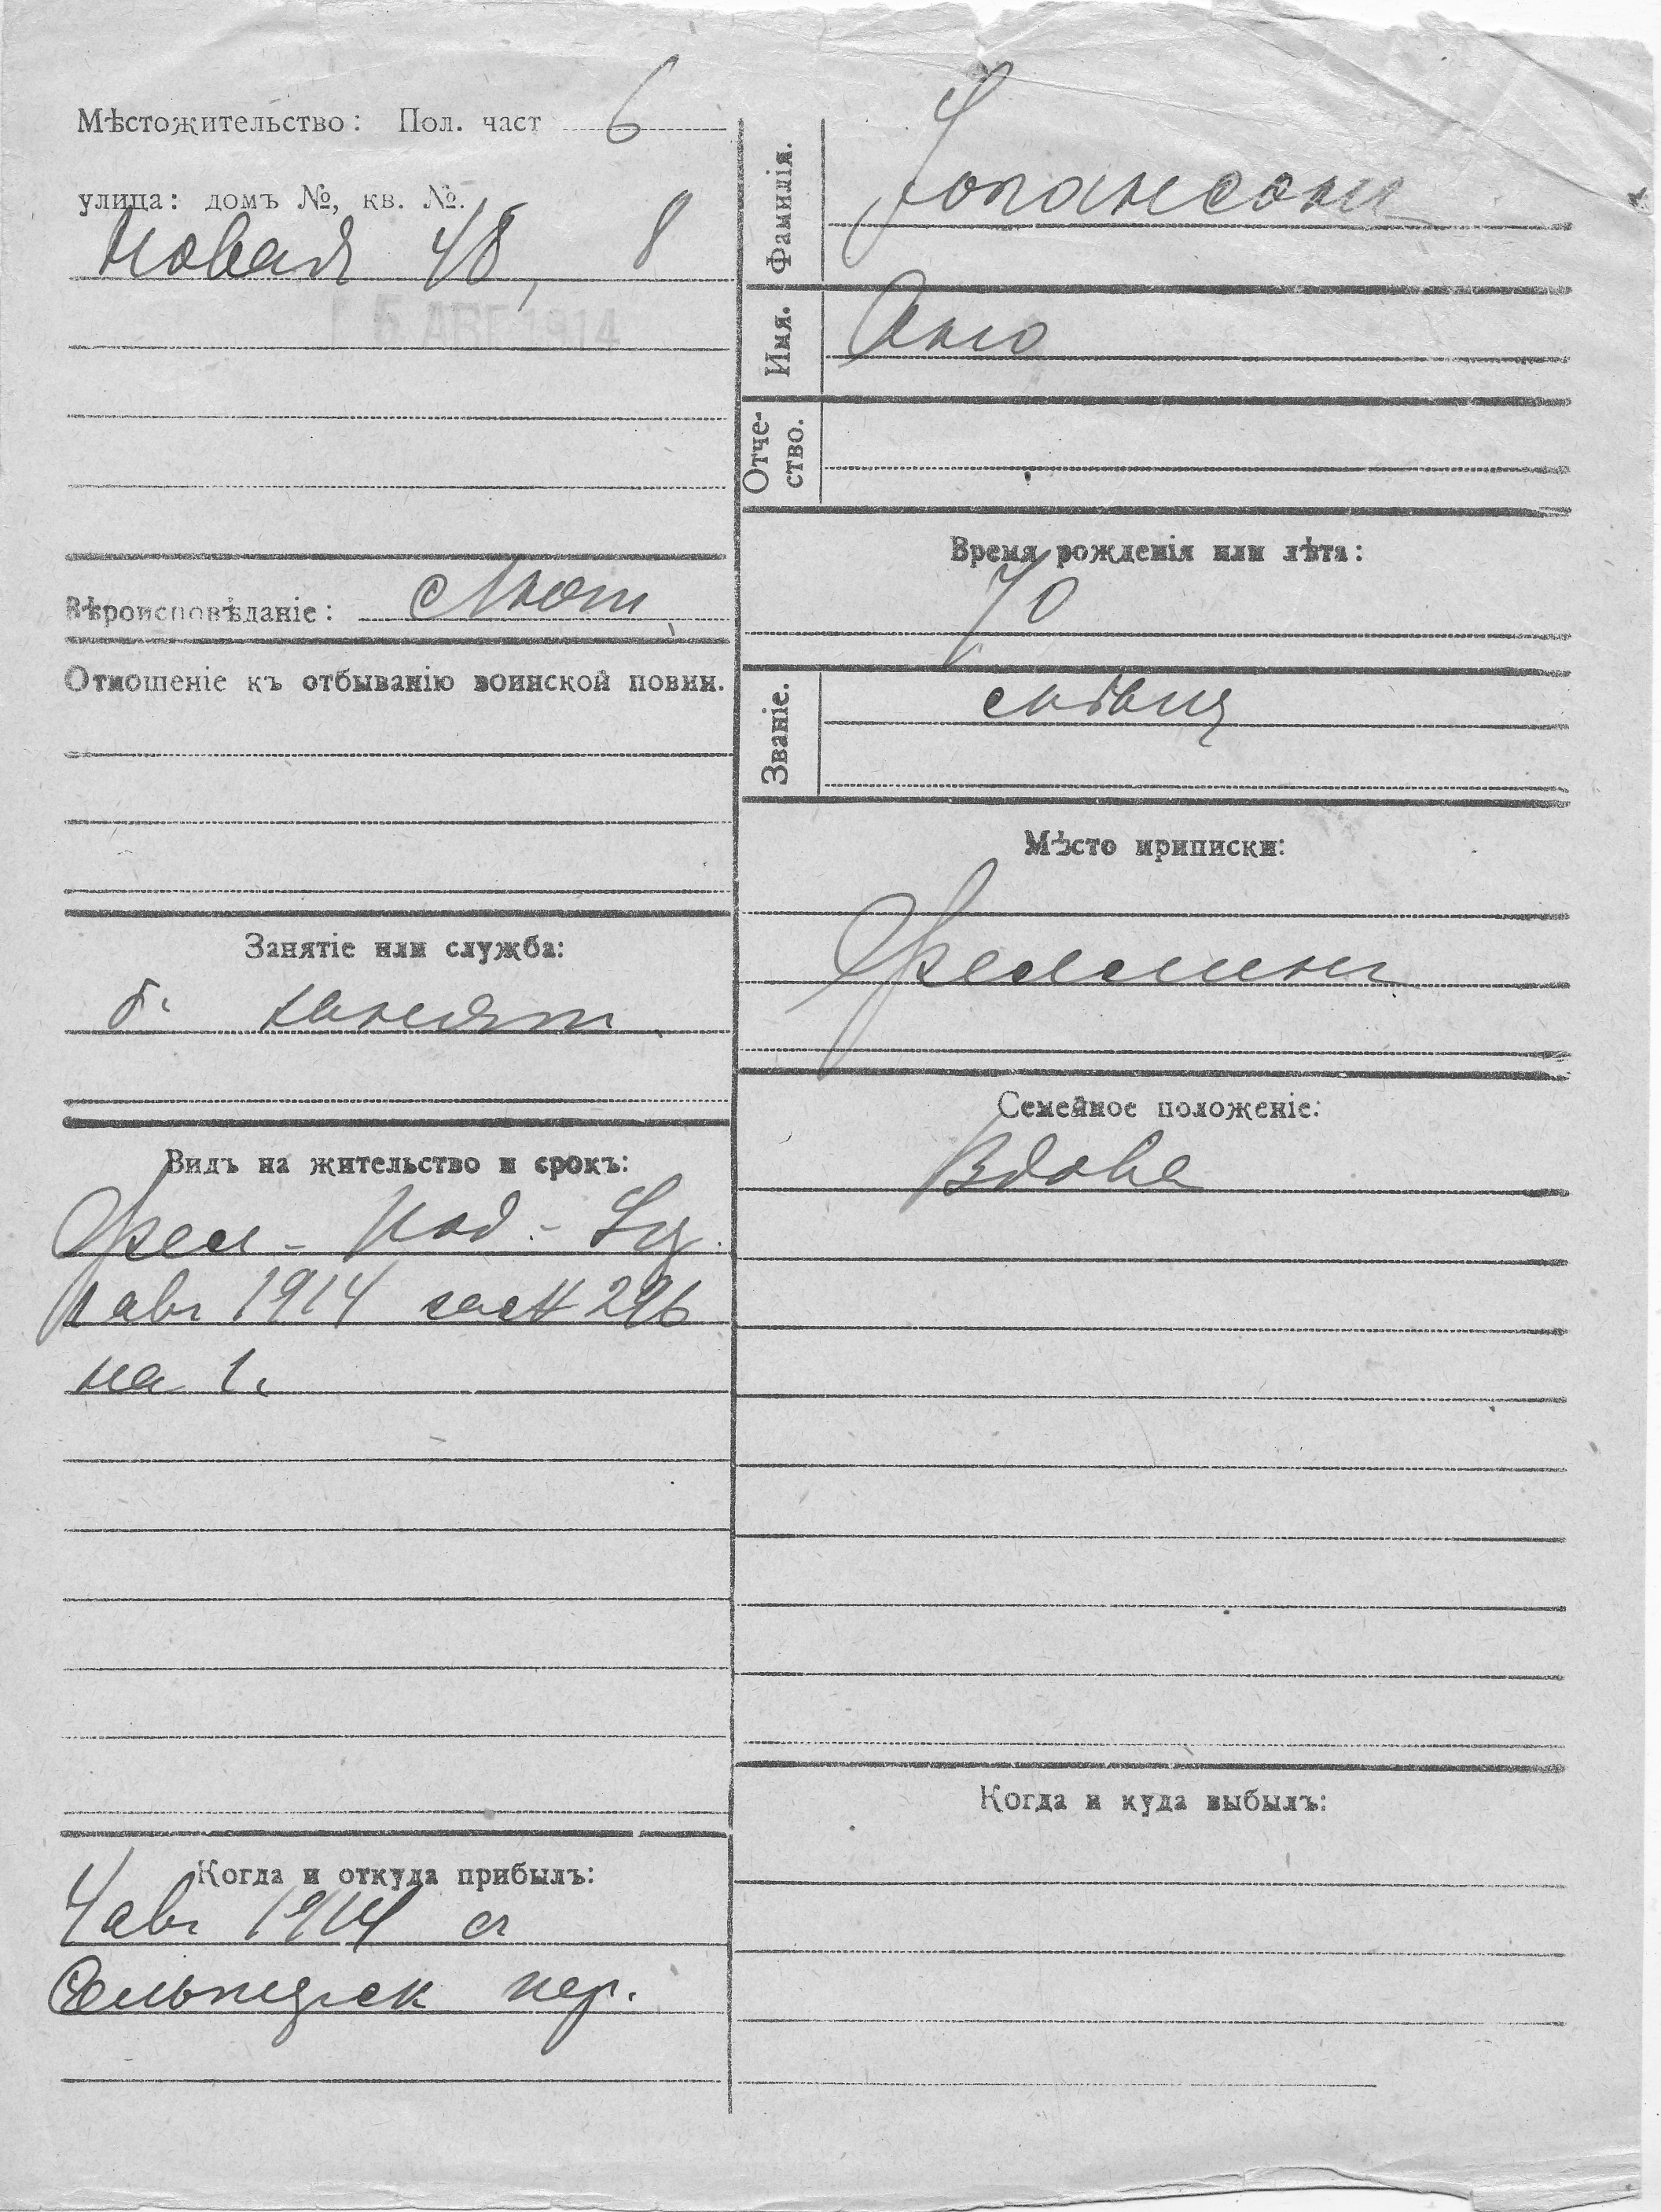 Мѣстожительство: Пол. част 6
улица: домъ №, кв. №.
Новая 48, 8
15 АВГ 1914
Вѣроисповѣданіе: Лют
Отношеніе къ отбыванію воинской повин.
Занятіе или служба:
б. занят
Видъ на жительство и срокъ:
1 авг 1914 за № 296
на 1 г
Когда и откуда прибылъ:
4 авг 1914 съ
пер.
Фамилія. Іогансонъ
Имя.
Отче-
ство.
Время рожденія или лѣта:
70
Званіе.
Мѣсто приписки:
Семейное положеніе:
Вдова
Когда и куда выбылъ: